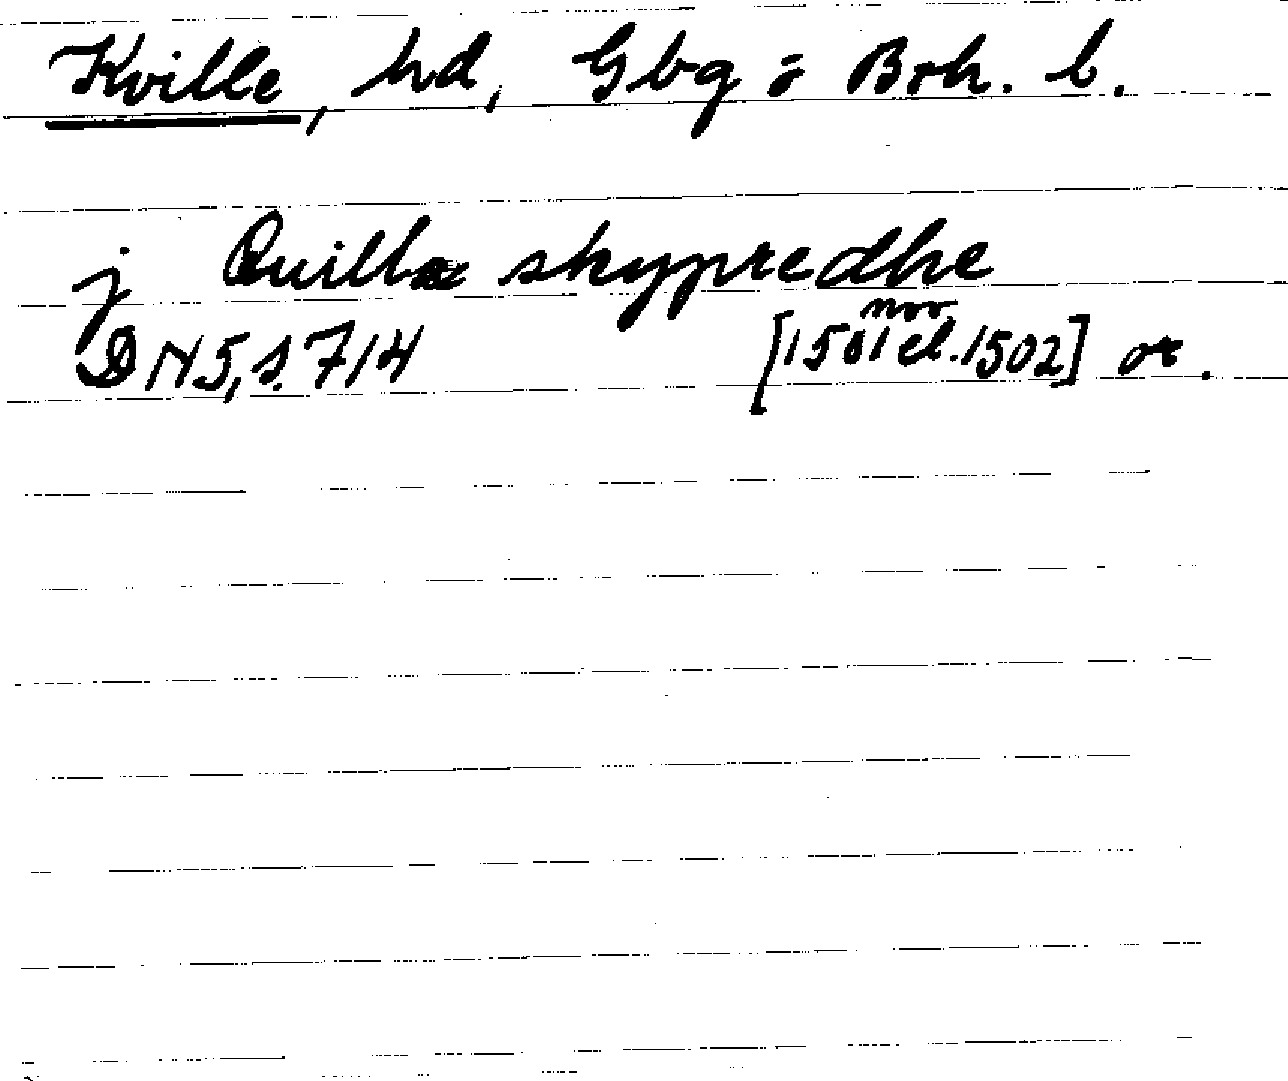 Kville, hd, Gbg o Boh. l.
j Quillæ skypredhe
nov
DN 5, s. 714 [1501 el. 1502] or.